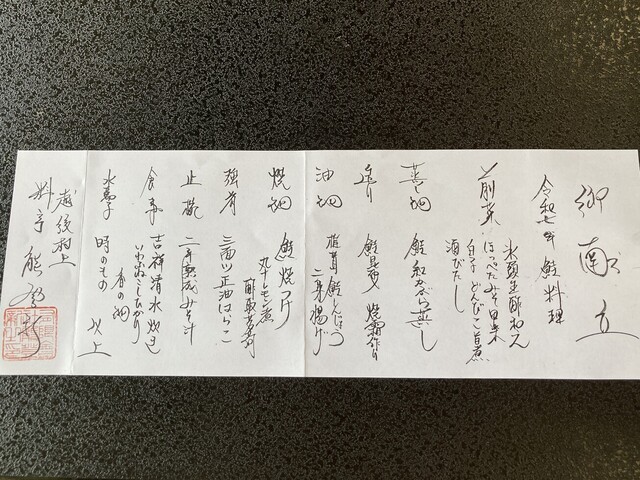 御献立
令和七年 鮭料理
前菜 氷頭生酢和え
ほっぺたみそ田楽
白子 どんびこ旨煮
酒びたし
蒸物 鮭紅葉蒸し
造り 鮭昆〆 焼霜作り
油物 椎茸鮭しんじょう
二身揚げ
焼物 鮭焼つけ
丸十レモン煮
酢取茗荷
強肴 三面川正油はらこ
止椀 二年熟成みそ汁
食事 吉祥清水炊き
いわふねこしひかり
香の物
水菓子 時のもの
以上
越後村上
料亭 能登新